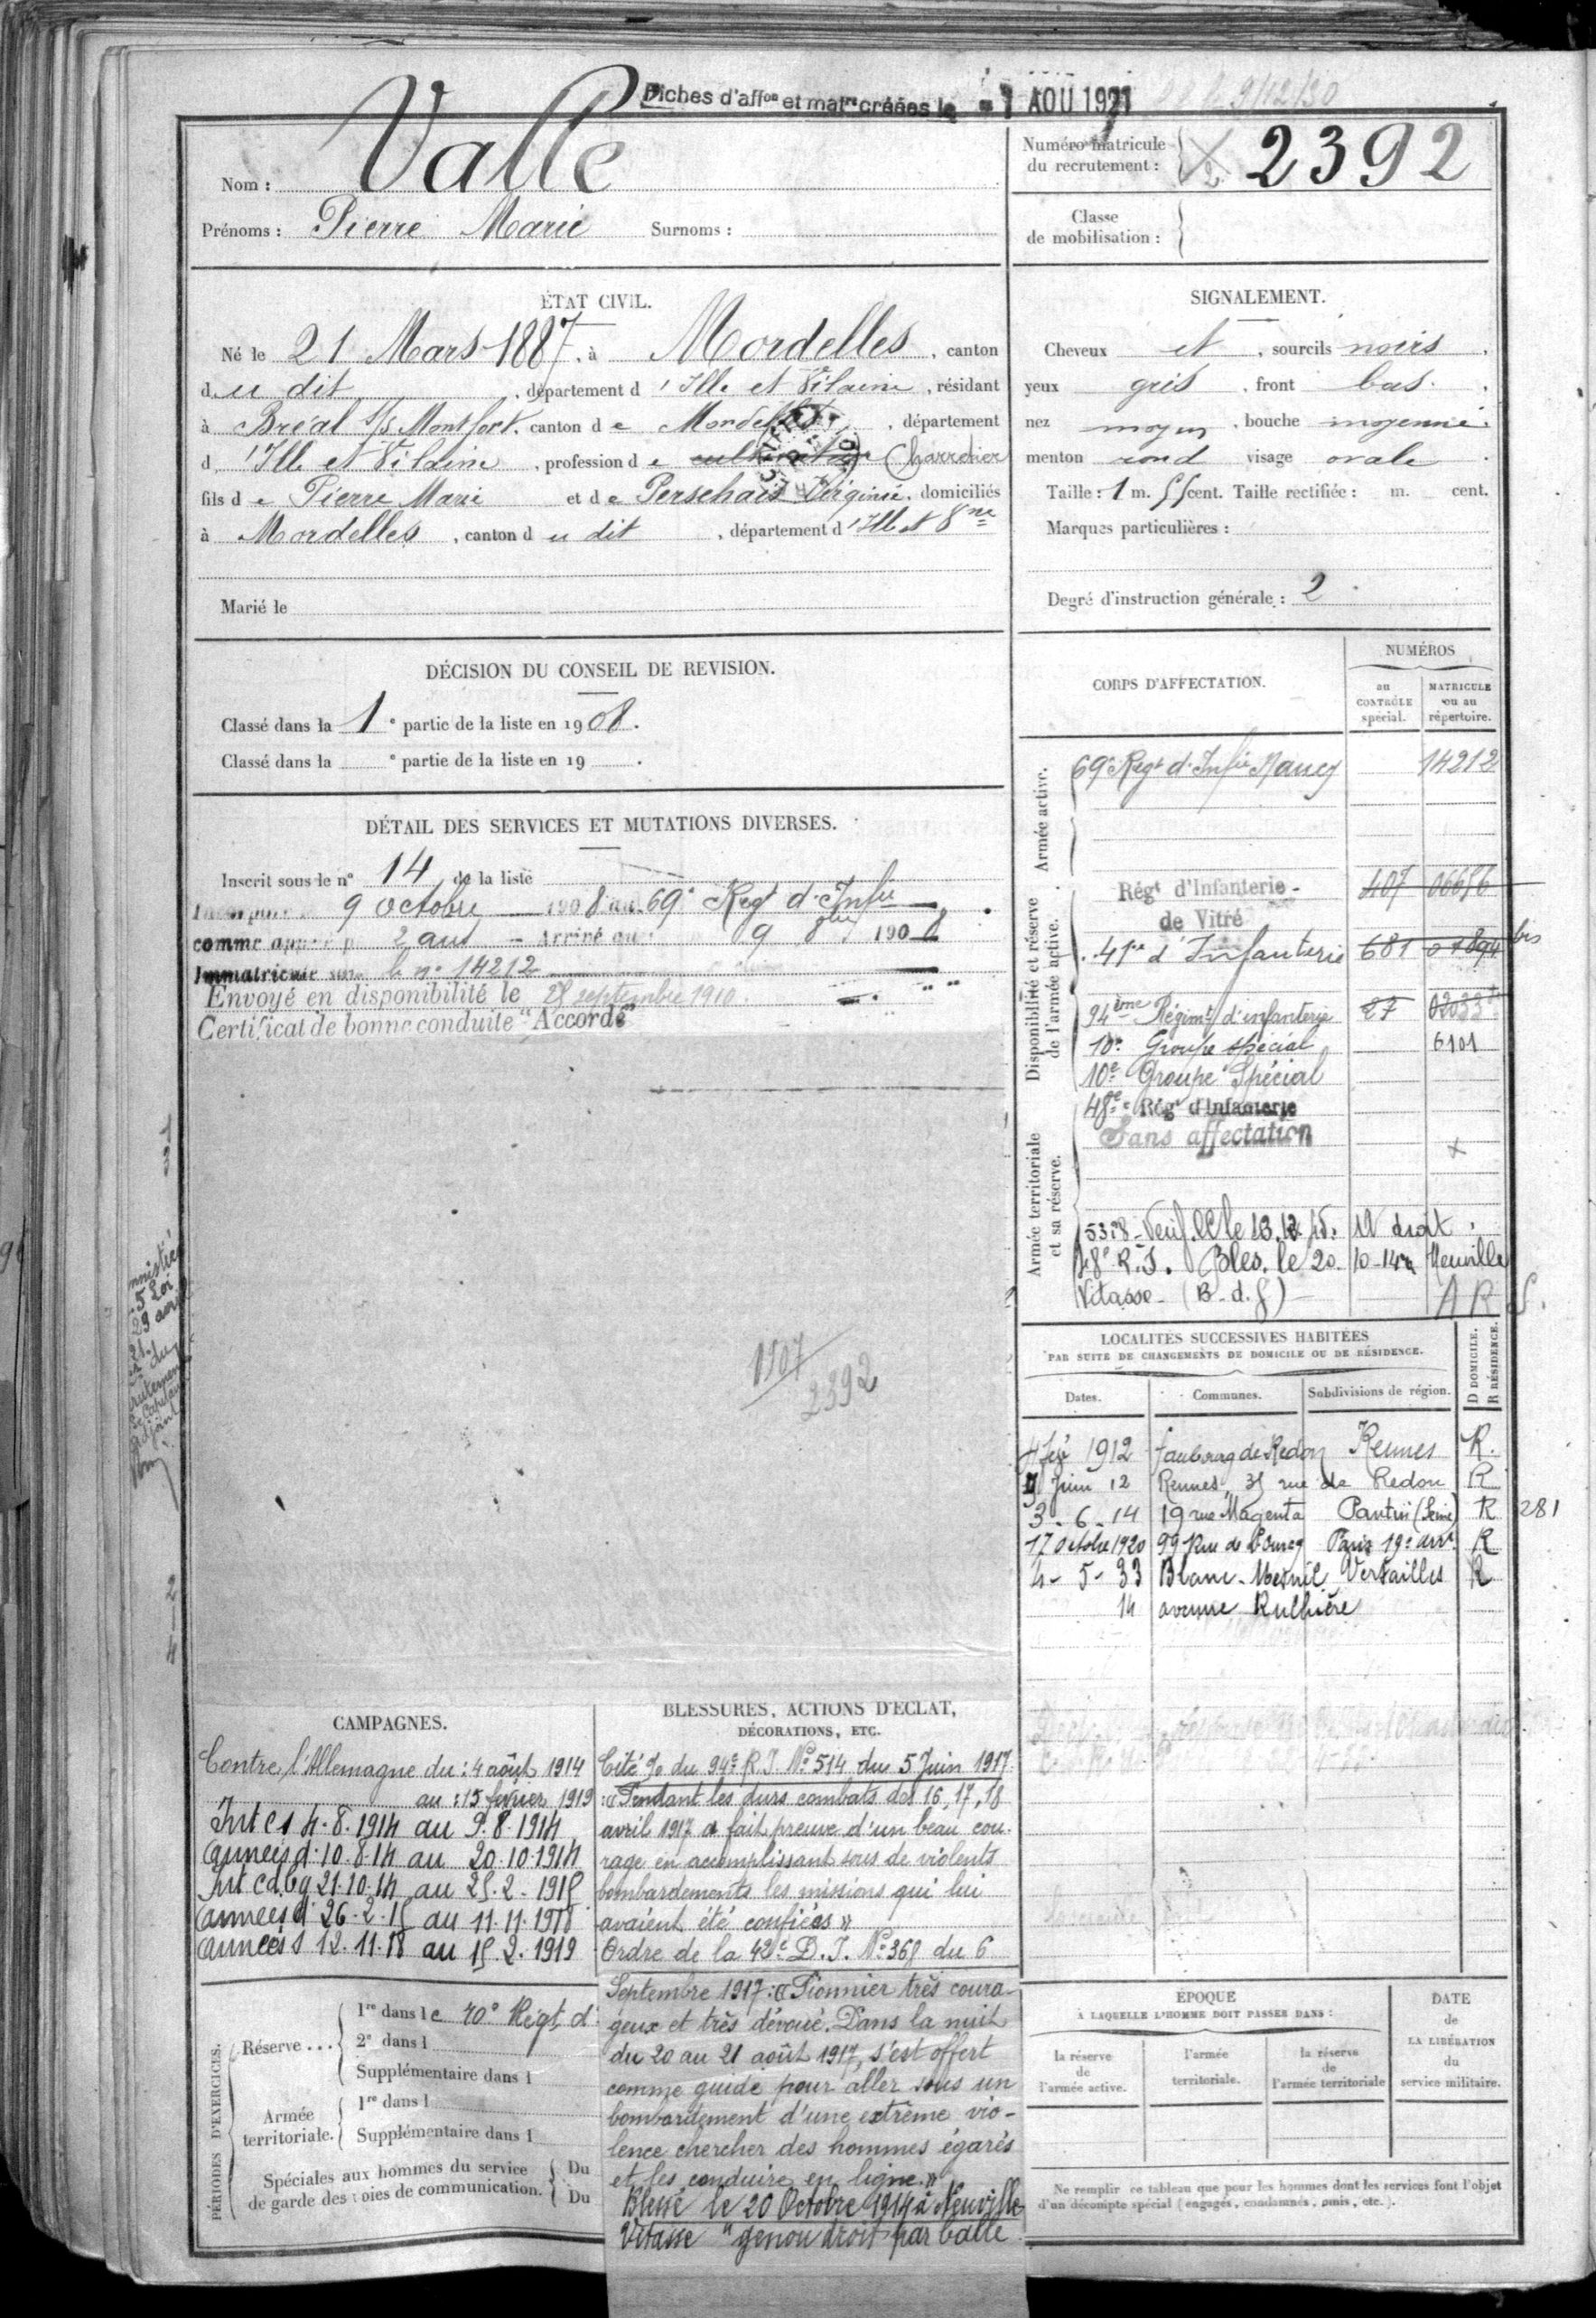 Fiches d'affon et matre créées le - 1 AOU 1921
9/12/30
Nom : Vallé
Prénoms : Pierre Marie Surnoms :
Numéro matricule du recrutement : 2392
Classe de mobilisation :
ÉTAT CIVIL.
Né le 21 Mars 1887, à Mordelles, canton
du dit, département d'Ille et Vilaine, résidant
à Bréal s/s Montfort, canton de Mordelles, département
d'Ille et Vilaine, profession de cultivateur Charretier
fils de Pierre Marie et de Perschais Virginie, domiciliés
à Mordelles, canton du dit, département d'Ille et Vne
Marié le
SIGNALEMENT.
Cheveux et, sourcils noirs,
yeux gris, front bas.
nez moyen, bouche moyenne.
menton rond visage ovale.
Taille : 1 m. 55 cent. Taille rectifiée : m. cent.
Marques particulières :
Degré d'instruction générale : 2
DÉCISION DU CONSEIL DE REVISION.
Classé dans la 1e partie de la liste en 1908.
Classé dans la e partie de la liste en 19 .
DÉTAIL DES SERVICES ET MUTATIONS DIVERSES.
Inscrit sous le n° 14 de la liste
9 octobre 1908 au 69e Regt d'Infie
comme appelé p 2 ans - Arrivé au 9 8bre 1908
Immatriculé sous le n° 14212
Envoyé en disponibilité le 25 septembre 1910.
Certificat de bonne conduite "Accordé"
1907
2392
CORPS D'AFFECTATION.
NUMÉROS
au CONTRÔLE spécial.
MATRICULE ou au répertoire.
Armée active.
69e Regt d'Infie Nancy 14212
Disponibilité et réserve de l'armée active.
Régt d'Infanterie - 407 06656
de Vitré
41e d'Infanterie 681 01894 bis
94ème Régimt d'infanterie 27 02033
10e Groupe spécial 6101
10e Groupe Spécial
48e Régt d'Infanterie
Sans affectation
Armée territoriale et sa réserve.
Bles. le 20. 10-14 a Neuville
Vitasse - (B-d.g)
LOCALITÉS SUCCESSIVES HABITÉES
PAR SUITE DE CHANGEMENTS DE DOMICILE OU DE RÉSIDENCE.
Dates. Communes. Subdivisions de région. D DOMICILE. R RÉSIDENCE.
4 fév 1912 faubourg de Redon Rennes R.
9 Juin 12 Rennes, 35 rue de Redon R
3-6-14 19 rue Magenta Pantin (Seine) R 281
17 octobre 1920 99 Rue de l'Ourcq Paris 19e arrt R
4-5-33 Blanc-Mesnil Versailles R
14 avenue Rulhière
CAMPAGNES.
Contre l'Allemagne du : 4 août 1914
au : 15 février 1919
Int cs 4.8.1914 au 9.8.1914
aux armées d. 10.8.14 au 20.10.1914
Int cd bg 21.10.14 au 25.2.1915
aux armées d 26.2.15 au 11.11.1918
aux armées s 12.11.18 au 15.2.1919
BLESSURES, ACTIONS D'ÉCLAT,
DÉCORATIONS, ETC.
Cité %o du 94e R.I. N° 514 du 5 Juin 1917.
: « Pendant les durs combats des 16, 17, 18
avril 1917 a fait preuve d'un beau cou-
rage en accomplissant sous de violents
bombardements les missions qui lui
avaient été confiées »
Ordre de la 42e D.I. N° 368 du 6
Septembre 1917 : « Pionnier très coura-
geux et très dévoué. Dans la nuit
du 20 au 21 août 1917, s'est offert
comme guide pour aller sous un
bombardement d'une extrême vio-
lence chercher des hommes égarés
et les conduire en ligne. »
Blessé le 20 Octobre 1914 à Neuville
Vitasse "genou droit par balle
PÉRIODES D'EXERCICES.
Réserve...
1re dans le 70e Régt d'
2e dans l
Supplémentaire dans l
Armée territoriale.
1re dans l
Supplémentaire dans l
Spéciales aux hommes du service de garde des voies de communication.
Du
Du
ÉPOQUE
À LAQUELLE L'HOMME DOIT PASSER DANS :
la réserve de l'armée active.
l'armée territoriale.
la réserve de l'armée territoriale
DATE de LA LIBÉRATION du service militaire.
Ne remplir ce tableau que pour les hommes dont les services font l'objet
d'un décompte spécial (engagés, condamnés, omis, etc.).